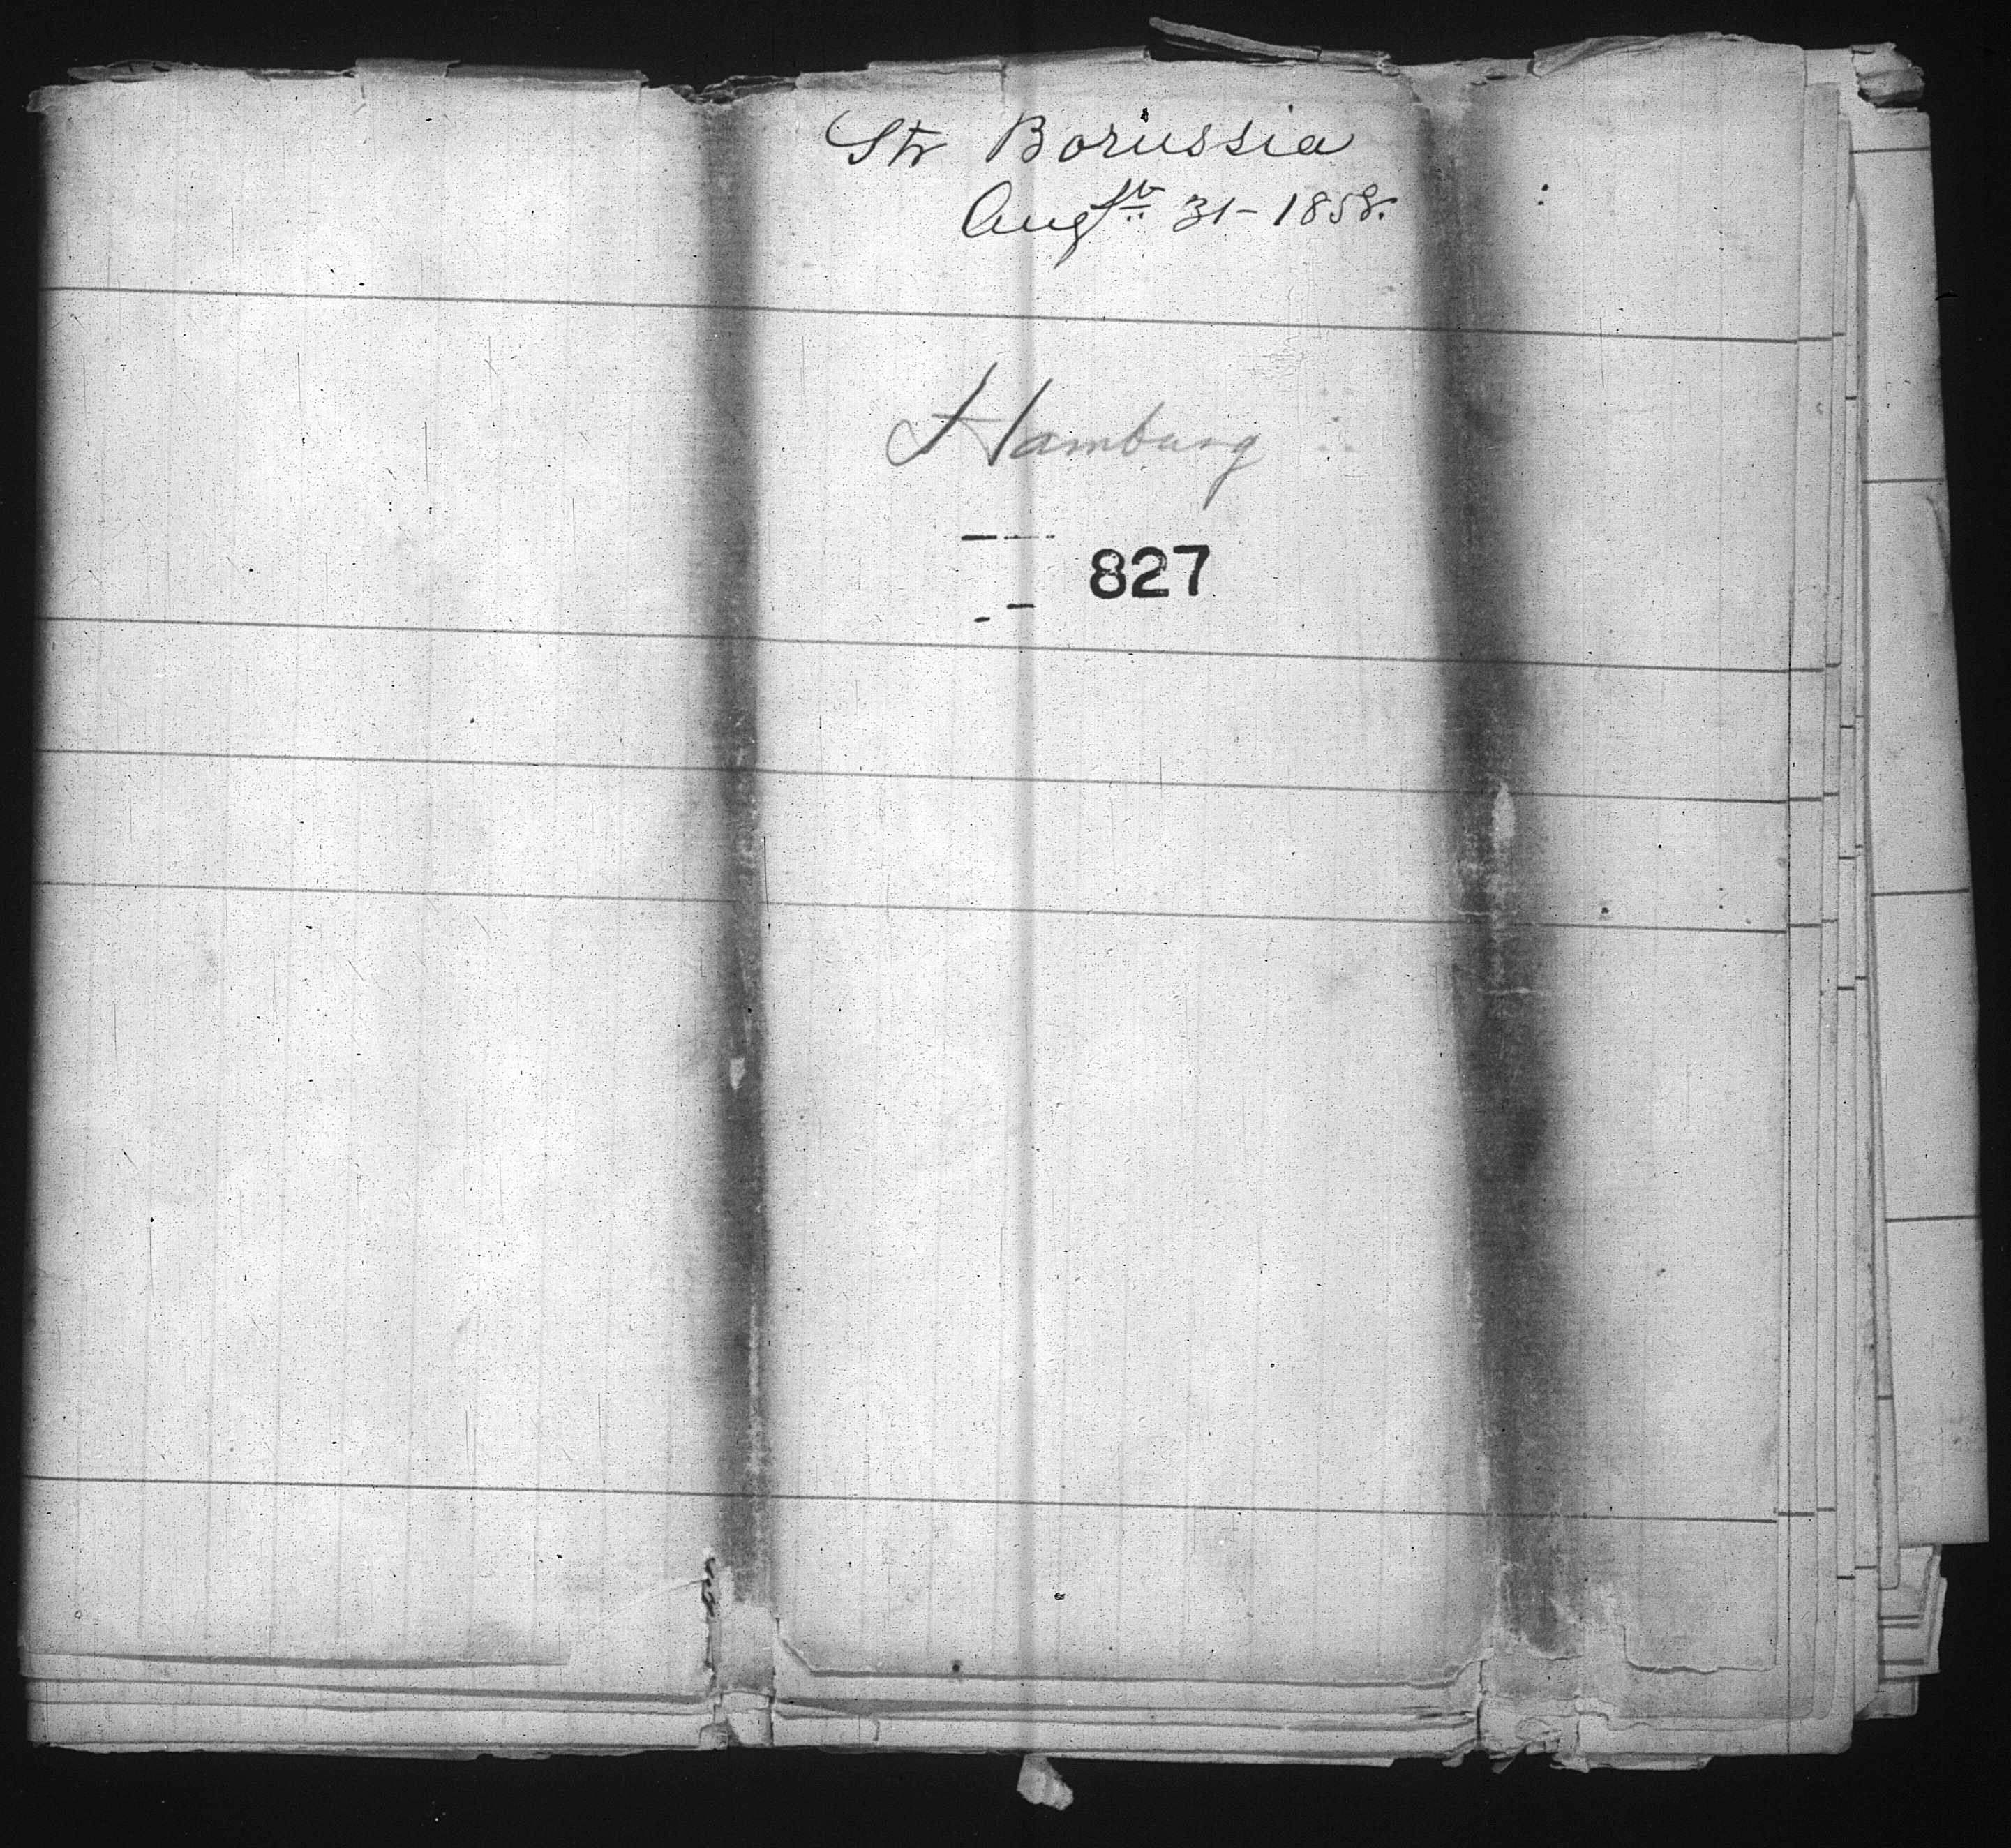 Str Borussia
Augst 31-1858.
Hamburg
827